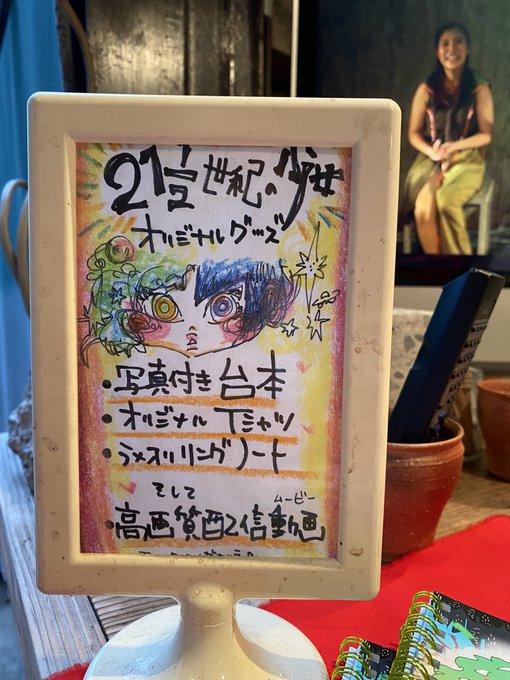 21½世紀の少女
オリジナルグッズ
・写真付き台本
・オリジナルTシャツ
・ラメオリリングノート
そして
ムービー
・高画質配信動画